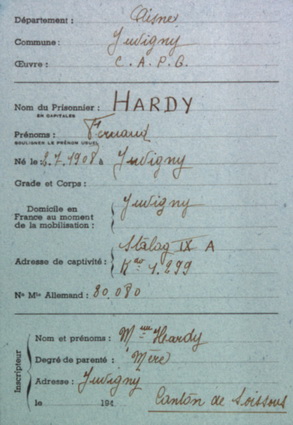 Département : Aisne
Commune : Juvigny
Œuvre : C. A. P. G.
Nom du Prisonnier : HARDY
EN CAPITALES
Prénoms : Fernand
SOULIGNER LE PRÉNOM USUEL
Né le 7.1908 à Juvigny
Grade et Corps :
Domicile en
France au moment
de la mobilisation : Juvigny
Stalag IX A
Adresse de captivité : Kdo 1.299
No Mle Allemand : 80.080
Inscripteur
Nom et prénoms : Mme Hardy
Degré de parenté : Mère
Adresse : Juvigny
le 194 Canton de Soissons